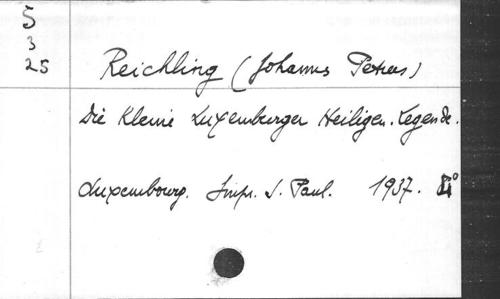 5
3
25
Reichling (Johannes Petrus)
Die Kleine Luxemburger Heiligen-Legende.
Luxembourg. Impr. S. Paul. 1937.